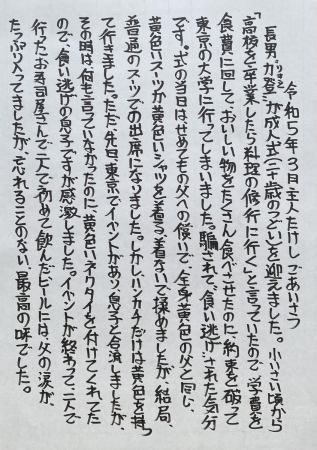 令和5年3月主人たけしごあいさつ
長男力登(リョウト)が成人式(二十歳のつどい)を迎えました。小さい頃から
「高校を卒業したら料理の修行に行く」と言っていたので、学費を
食費に回しておいしい物をたくさん食べさせたのに、約束を破って
東京の大学に行ってしまいました。騙されて、食い逃げされた気分
です。式の当日は、せめてもの父への償いで、全身黄色の父と同じ、
黄色いスーツか黄色いシャツを着る、着ないで揉めましたが、結局、
普通のスーツでの出席になりました。しかし、ハンカチだけは黄色を持っ
て行きました。ただ、先日、東京でイベントがあり、息子と合流しましたが、
その時は、何も言っていなかったのに、黄色いネクタイを付けてくれてた
ので、食い逃げの息子ですが感激しました。イベントが終わって、二人で
行ったお寿司屋さんで、二人で初めて飲んだビールには、父の涙が、
たっぷり入ってましたが、忘れることのない、最高の味でした。